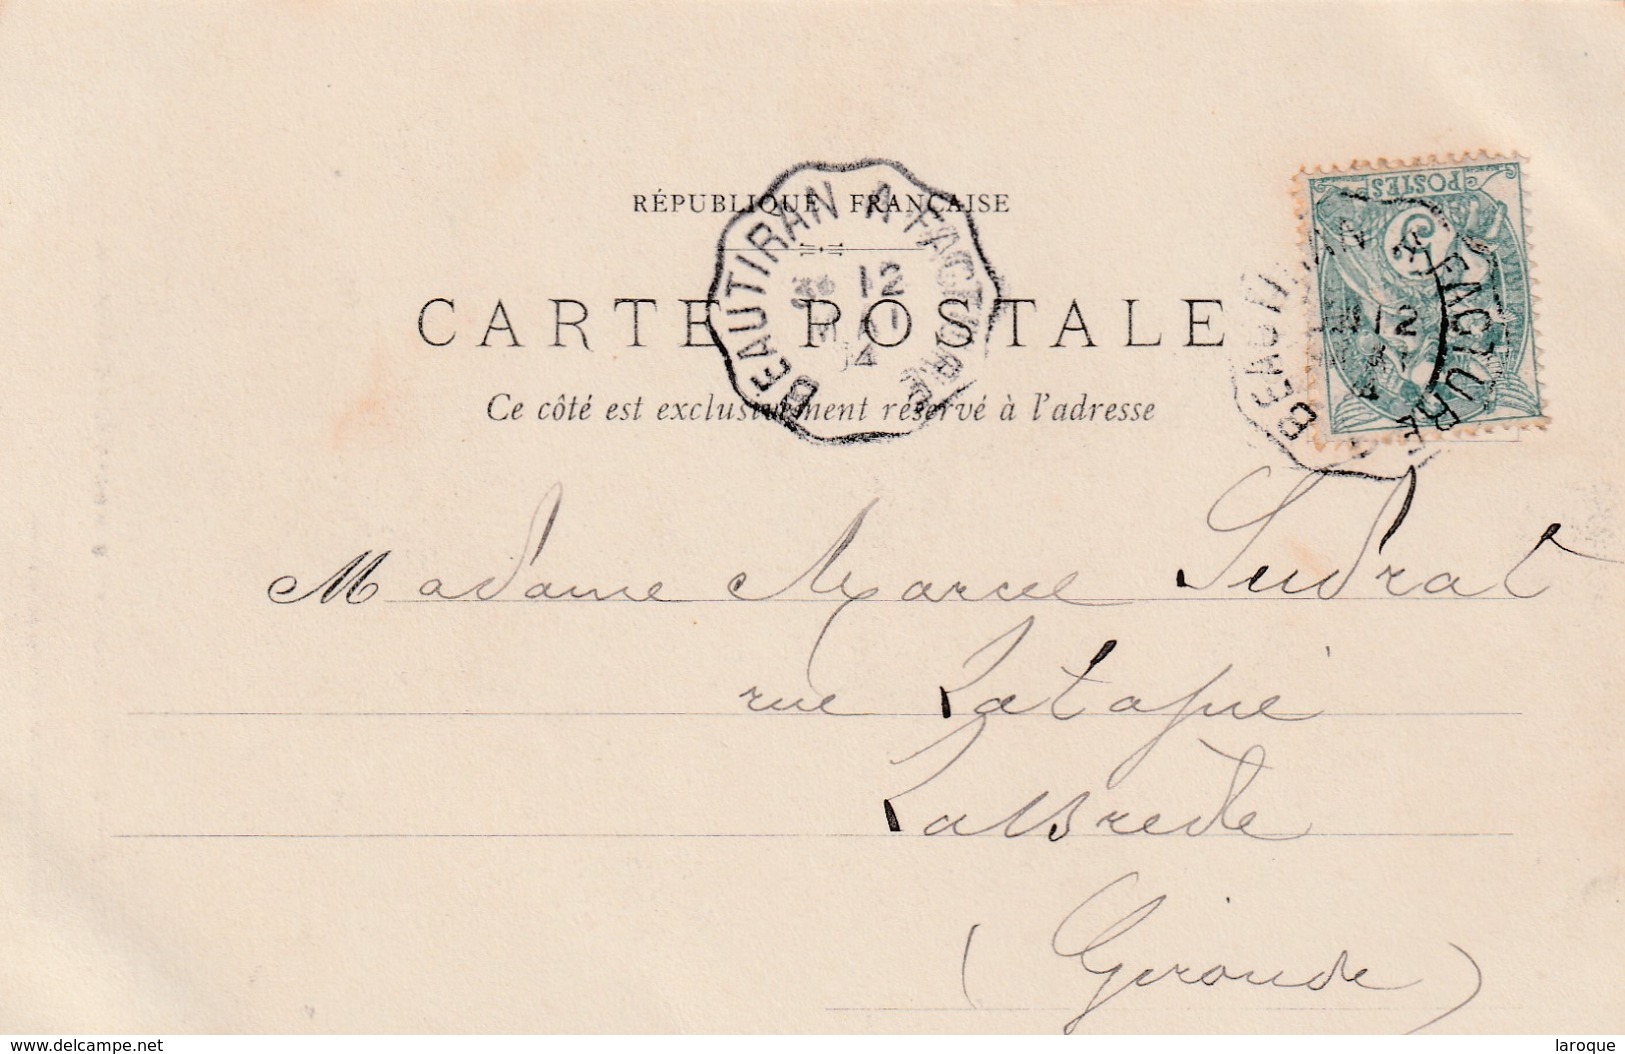 RÉPUBLIQUE FRANÇAISE
BEAUTIRAN A FACTURE
12
MAI
04
POSTES
5
CARTE POSTALE
Ce côté est exclusivement réservé à l'adresse
Madame Marcel Sudrat
rue Latapie
Labrède
(Gironde)
www.delcampe.net
laroque